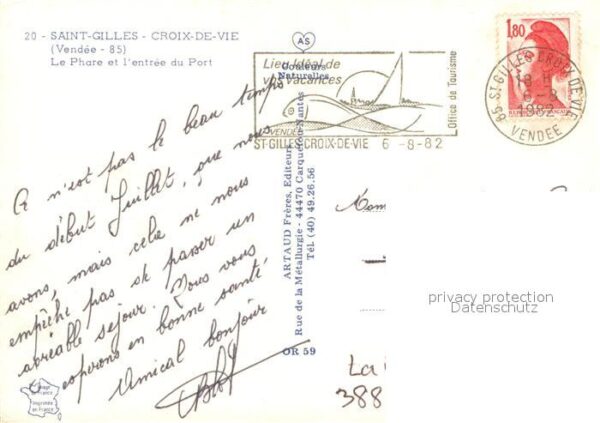 20 - SAINT-GILLES - CROIX-DE-VIE
(Vendée - 85)
Le Phare et l'entrée du Port
Ce n'est pas le beau temps
du début Juillet, que nous
avons, mais cela ne nous
empêche pas de passer un
agréable séjour. Nous vous
espérons en bonne santé
Amical bonjour
Image
de France
Imprimée
en France
AS
Couleurs
Naturelles
ARTAUD Frères, Editeurs
Rue de la Métallurgie - 44470 Carquefou-Nantes
Tél (40) 49.26.56
OR 59
Lieu Idéal de
vos vacances
VENDÉE
Office de Tourisme
ST-GILLES-CROIX-DE-VIE 6 -8-82
1,80
85 ST GILLES CROIX DE VIE
18 H
6-8
1982
VENDEE
privacy protection
Datenschutz
La
388